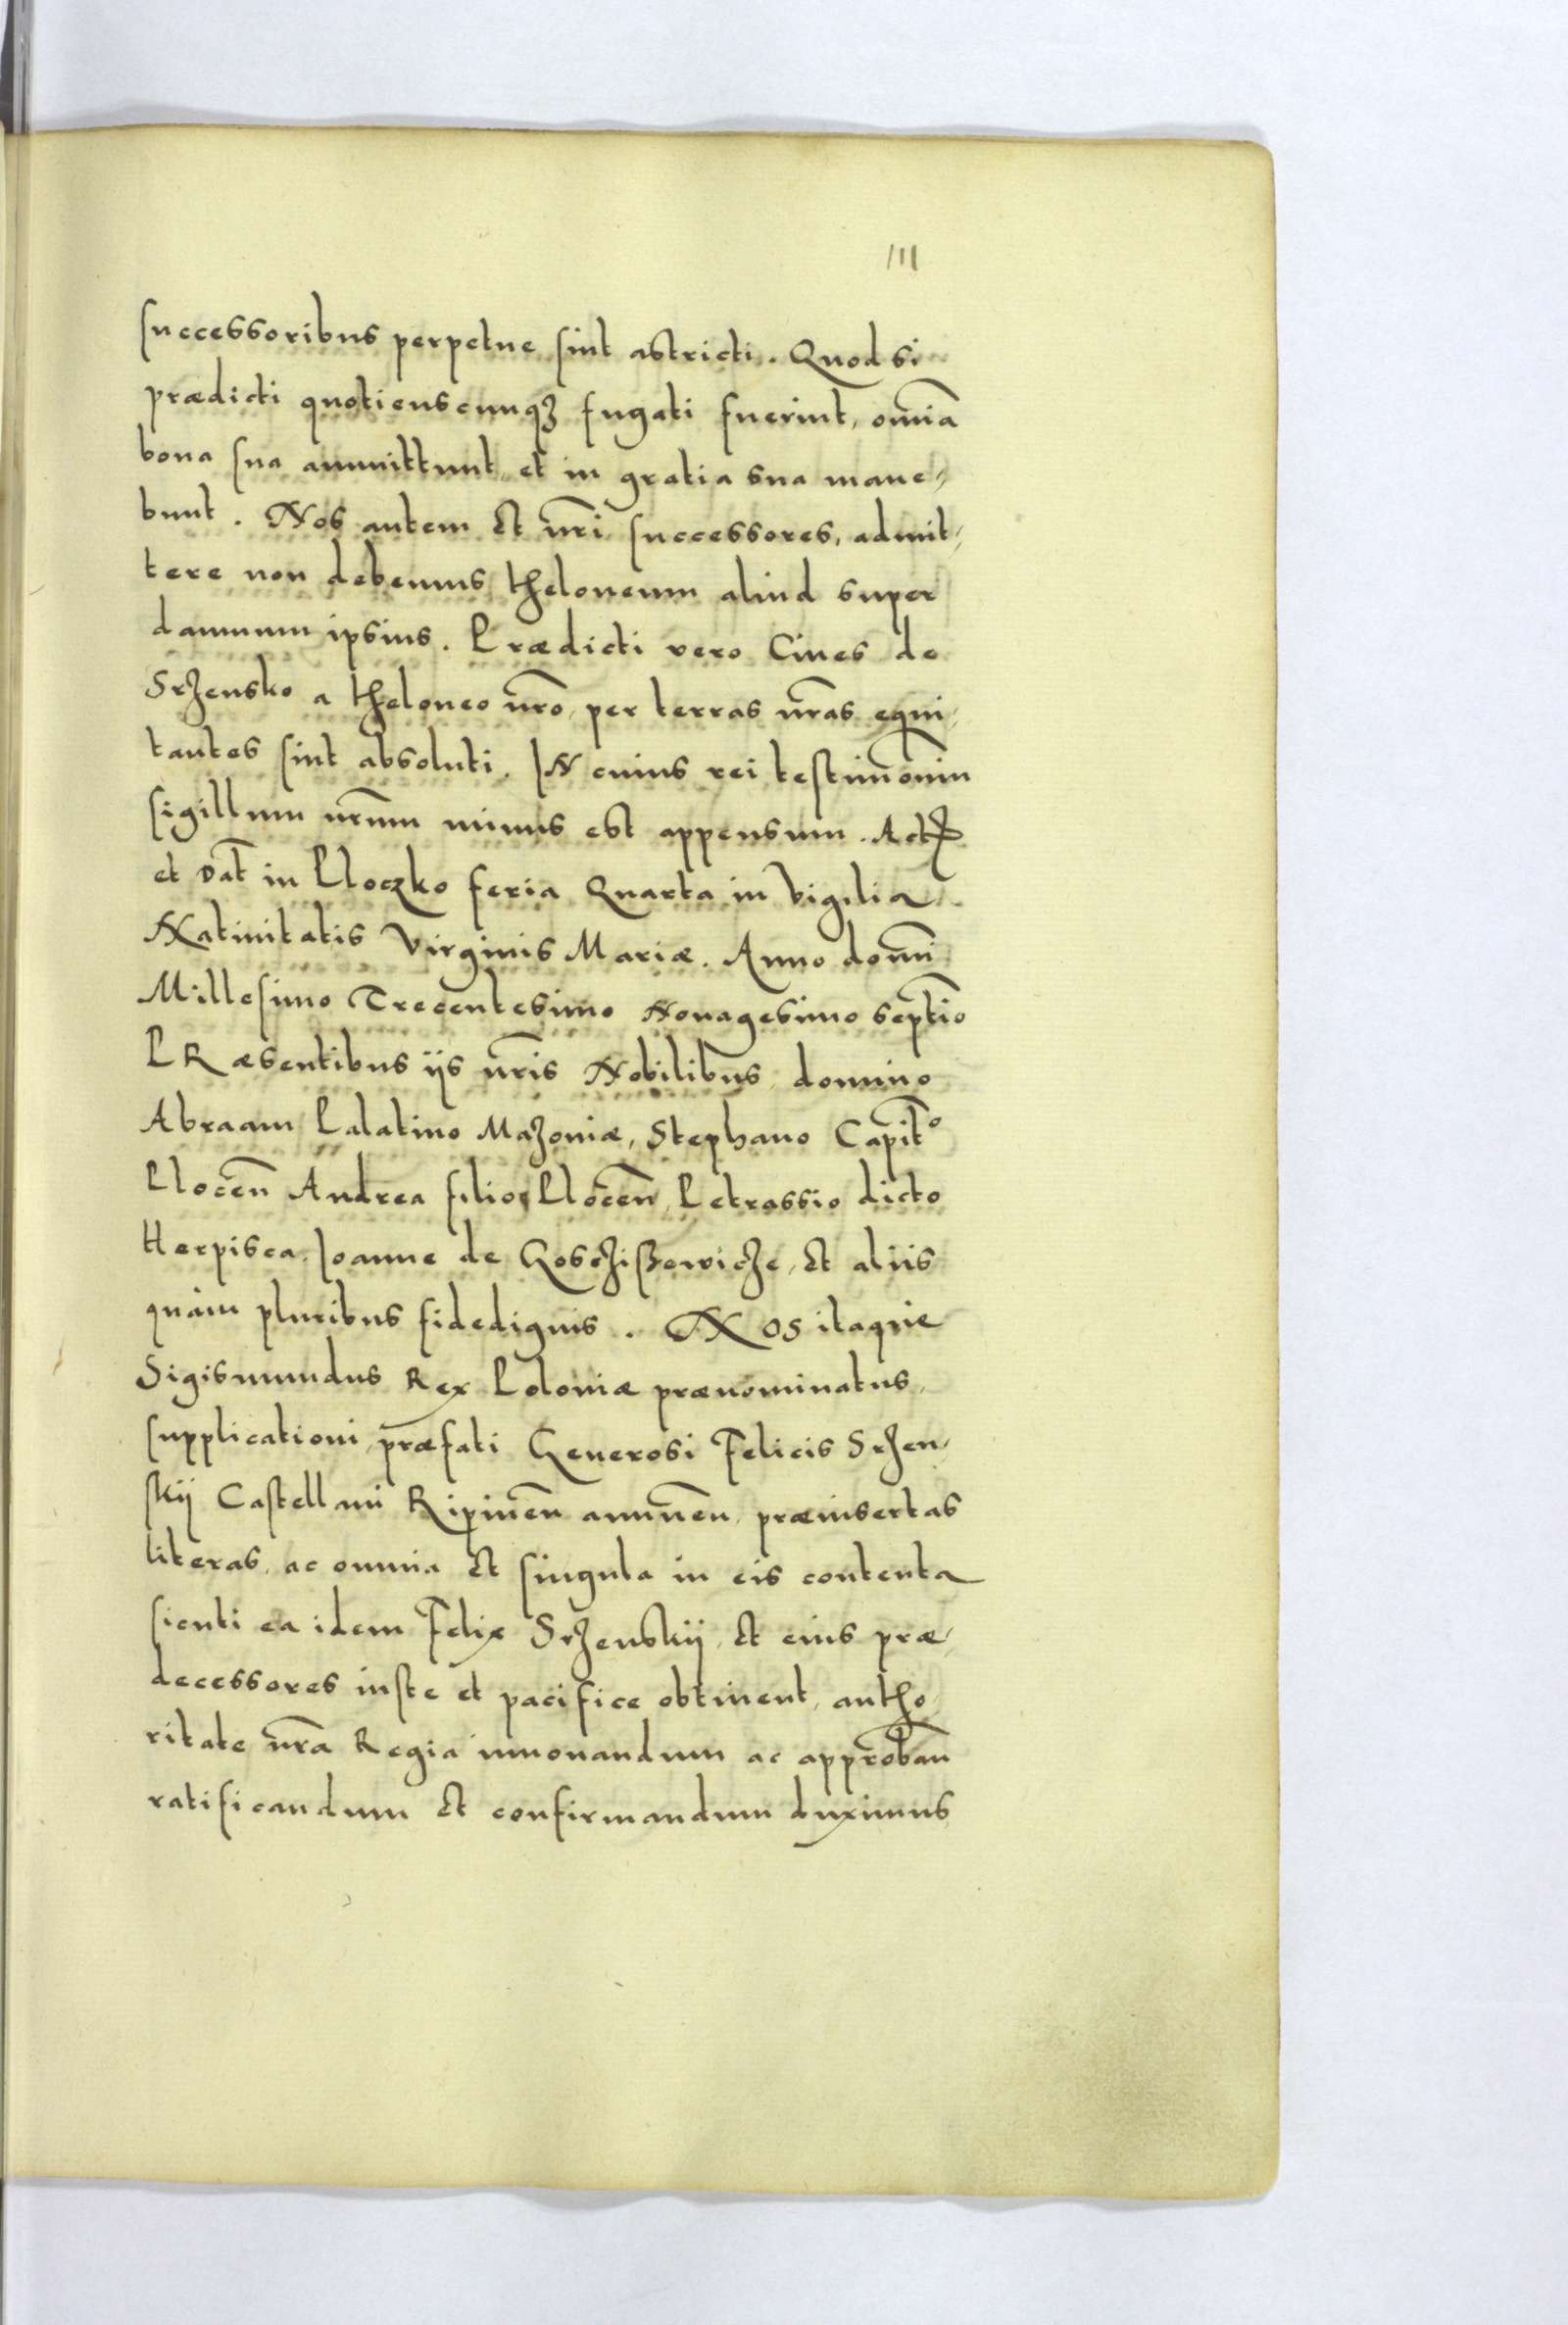 111
successoribus perpetue sint astricti. Quod si
prædicti quotienscunqꝫ fugati fuerint, om̃ia
bona sua ammittunt, et in gratia sua mane-
bunt. Nos autem et nr̃i successores, admit-
tere non debemus theloneum aliud super
damnum ipsius. Prædicti vero Ciues de
Srzensko a theloneo nr̃o, per terras nr̃as equi-
tantes sint absoluti. IN cuius rei testimoniũ
sigillum nr̃um minus est appensum. Act̃
et Dat̃ in Ploczko feria Quarta in Vigilia
Natiuitatis Virginis Mariæ. Anno dom̃i
Millesimo Trecentesimo Nonagesimo septĩo
PRæsentibus ijs nr̃is Nobilibus, domino
Abraam Palatino Mazouiæ, Stephano Capit̃º
Plocen̄ Andrea filio Plocen̄, Petrassio dicto
Herpisca, Joanne de Goschißewicze, et aliis
quàm pluribus fidedignis. NOS itaque
Sigismundus Rex Poloniæ prænominatus,
supplicationi præfati Generosi Felicis Srzen-
skij Castellani Ripinen̄ annuen̄, præinsertas
literas, ac omnia et singula in eis contenta
sicuti ea idem Felix Srzenskij, et eius præ-
decessores iuste et pacifice obtinent, autho-
ritate nr̃a Regia innouandum ac approban̄
ratificandum et confirmandum duximus